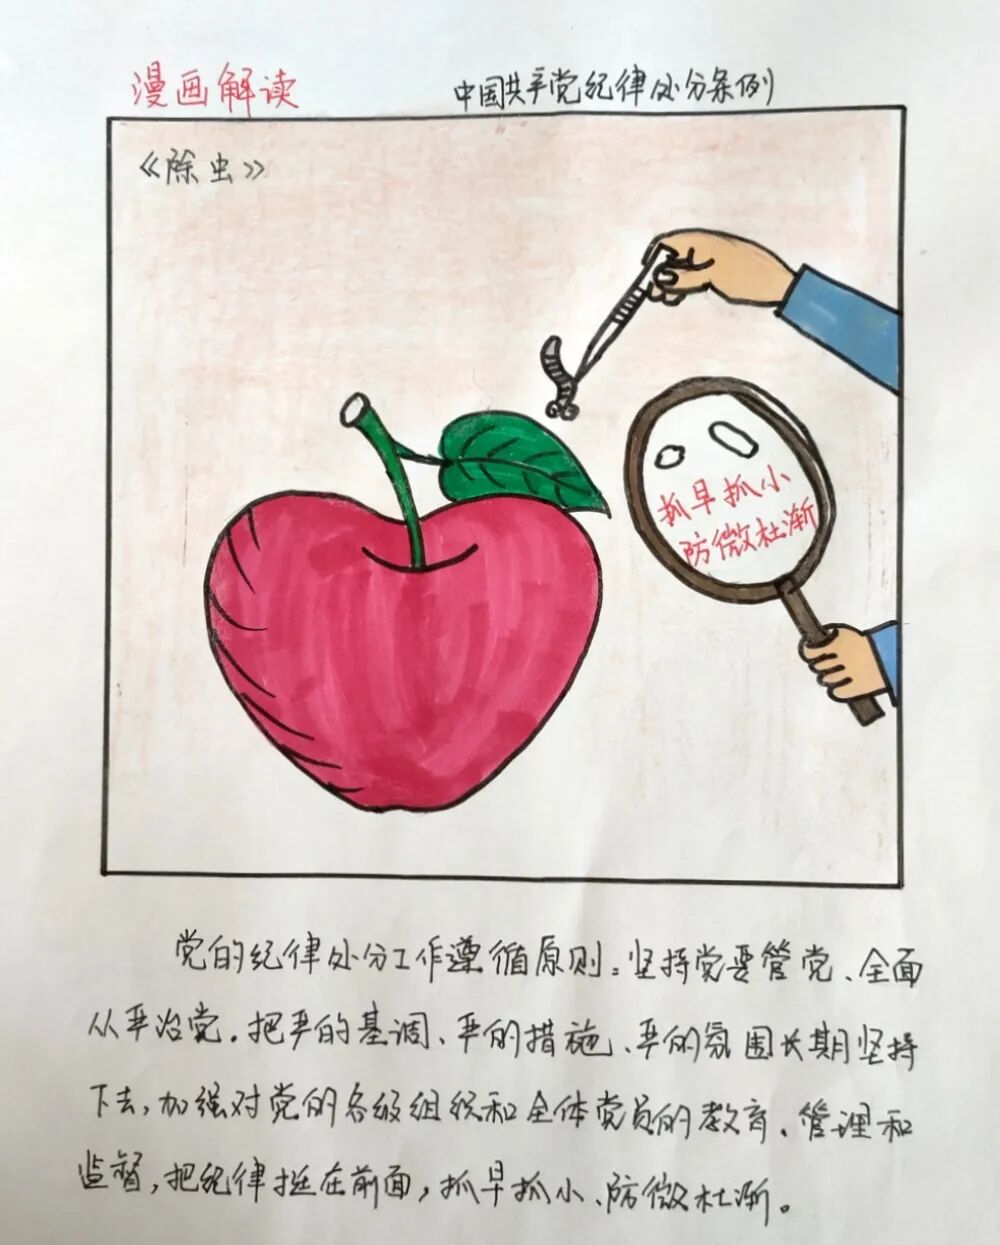 漫画解读
中国共产党纪律处分条例
《除虫》
抓早抓小
防微杜渐
党的纪律处分工作遵循原则:坚持党要管党、全面
从严治党。把严的基调、严的措施、严的氛围长期坚持
下去,加强对党的各级组织和全体党员的教育、管理和
监督,把纪律挺在前面,抓早抓小、防微杜渐。